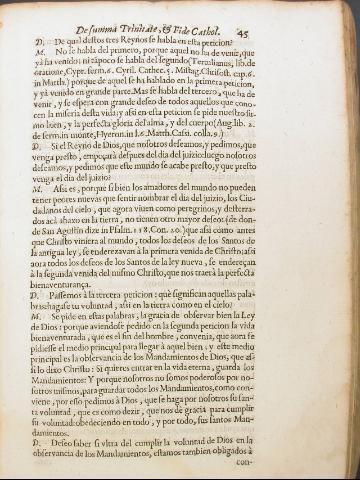 De summa Trinitate, & Fide Cathol. 45
D. De qual destos tres Reynos se habla en esta peticion?
M. No se habla del primero, porque aquel no ha de venir, que
yà ha venido: ni tãpoco se habla del segundo (Tertulianus, lib. de
oratione, Cypr. serm. 6. Cyril. Cathec. 5. Mistag. Chrisost. cap. 6.
in Matth.) porque de aquel se ha hablado en la primera peticion,
y yà venido en grande parte. Mas se habla del tercero, que ha de
venir, y se espera con grande deseo de todos aquellos que cono-
cen la miseria desta vida; y assi en esta peticion se pide nuestro su-
mo bien, y la perfecta gloria del alma, y del cuerpo (Aug. lib. 2.
de serm. in monte, Hyeron. in I. 6. Matth. Cassi. colla. 9.)
D. Si el Reyno de Dios, que nosotros deseamos, y pedimos, que
venga presto, empeçarà despues del dia del juizio: luego nosotros
deseamos, y pedimos que este mundo se acabe presto, y que presto
venga el dia del juizio?
M. Assi es, porque si bien los amadores del mundo no pueden
tener peores nuevas que sentir nombrar el dia del juizio, los Ciu-
dadanos del cielo, que agora viven como peregrinos, y desterra-
dos acà abaxo en la tierra, no tienen otro mayor deseo (de don-
de San Agustin dize in Psalm. 118. Con. 20.) que assi como antes
que Christo viniera al mundo, todos los deseos de los Santos de
la antigua ley, se enderezavan à la primera venida de Christo; assi
aora todos los deseos de los Santos de la ley nueva, se endereçan
à la segunda venida del mismo Christo, que nos traerà la perfecta
bienaventurança.
D. Passemos à la tercera peticion: què significan aquellas pala-
bras: hagase tu voluntad, assi en la tierra como en el cielo?
M. Se pide en estas palabras, la gracia de observar bien la Ley
de Dios: porque aviendose pedido en la segunda peticion la vida
bienaventurada, que es el fin del hombre, convenia, que aora se
pidiesse el medio principal para llegar à aquel bien, y este medio
principal es la observancia de los Mandamientos de Dios, que as-
si lo dixo Christo: Si quieres entrar en la vida eterna, guarda los
Mandamientos: Y porque nosotros no somos poderosos por no-
sotros mismos, para guardar todos los Mandamientos, como con-
viene, por esso pedimos à Dios, que se haga por nosotros su san-
ta voluntad, que es como dezir, que nos de gracia para cumplir
su voluntad: obedeciendo en todo, y por todo, sus santos Man-
damientos.
D. Deseo saber si vltra del cumplir la voluntad de Dios en la
observancia de los Mandamientos, estamos tambien obligados à
con-